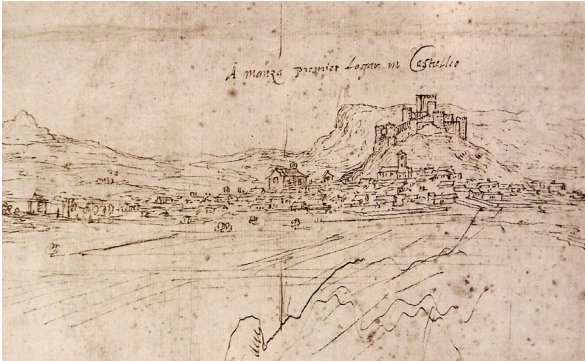 A manza premier logar in Castellio